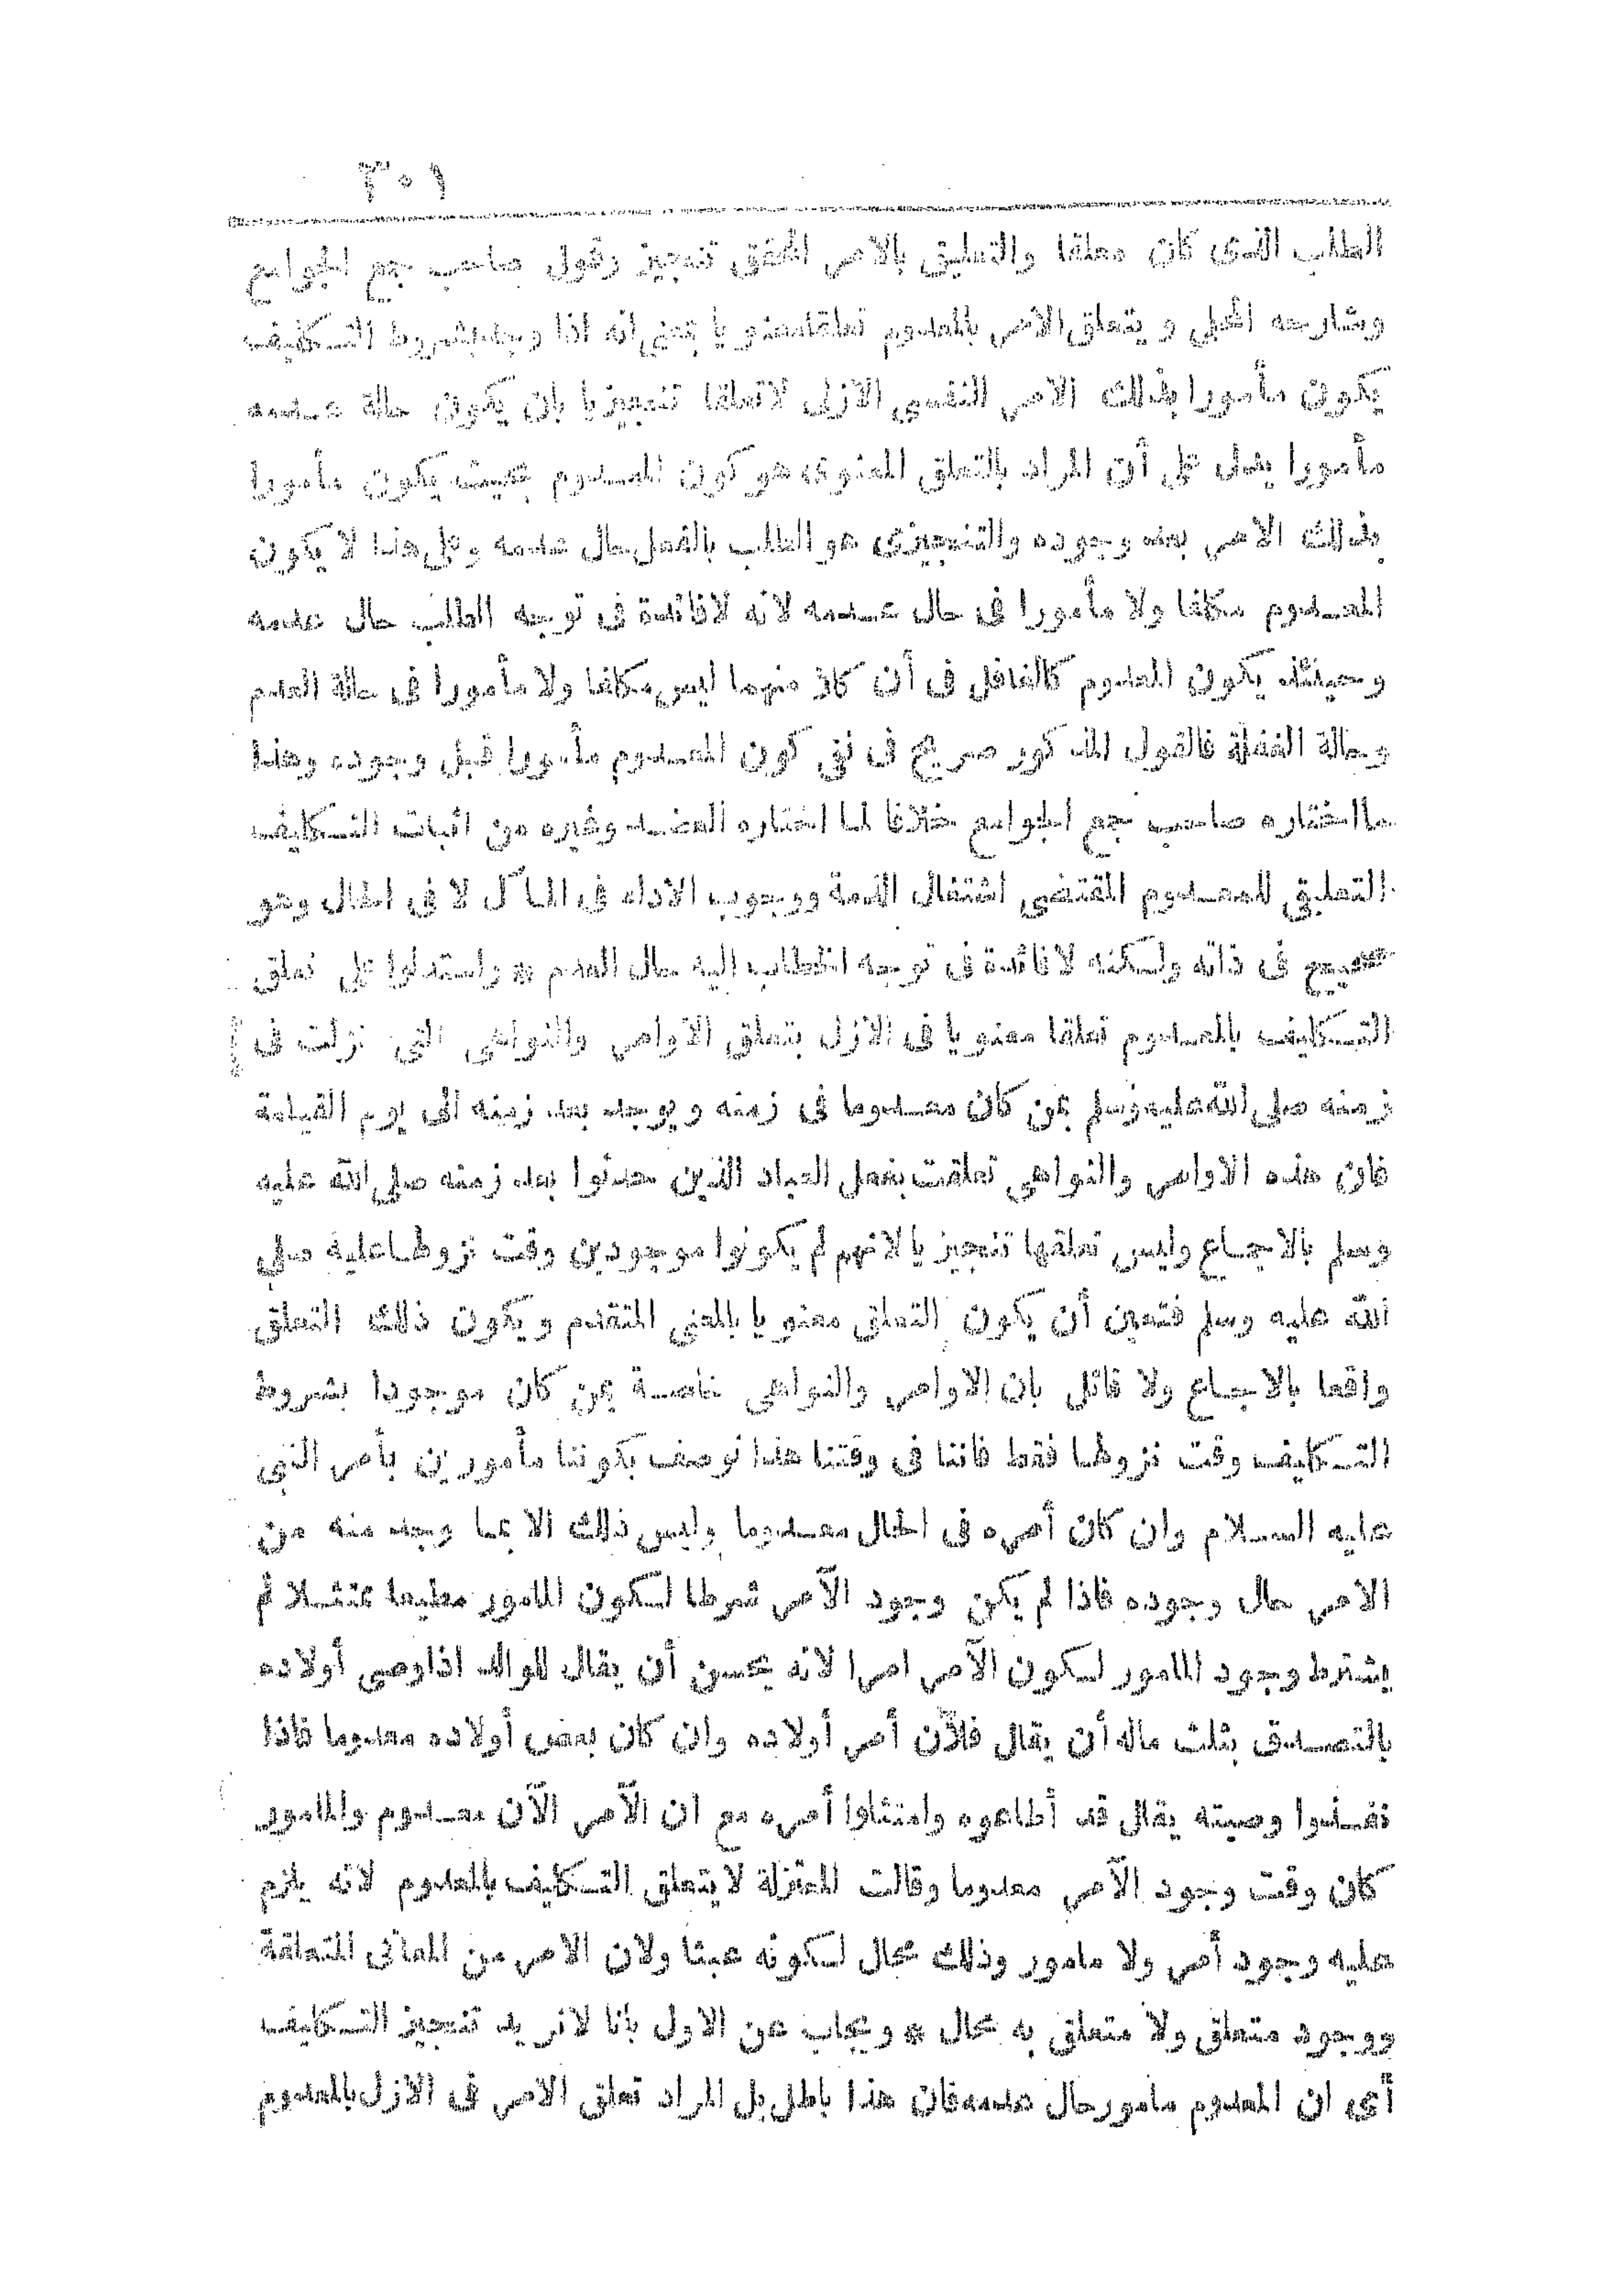 ٣٠١
الطلب الذى كان معلقا والتعليق بالامر المحقق تنجيز وقول صاحب جمع الجوامع
وشارحه المحلى و يتعلق الامر بالمعدوم تعلقا معنو يا بمعنى انه اذا وجد بشروط التـكليف
يكون مأمورا بذلك الامر النفسى الازلى لا تعلقا تنجيز يا بان يكون حالة عـدمه
مأمورا يدل على أن المراد بالتعلق المعنوى هو كون المعـدوم بحيث يكون مأمورا
بذلك الامر بعد وجوده والتنجيزى هو الطلب بالفعل حال عدمه وعلى هذا لا يكون
المعـدوم مكلفا ولا مأمورا فى حال عـدمه لانه لا فائدة فى توجه الطلب حال عدمه
وحينئذ يكون المعدوم كالغافل فى أن كلا منهما ليس مكلفا ولا مأمورا فى حالة العدم
وحالة الغفلة فالقول المذ كور صريح فى نفى كون المعـدوم مأمورا قبل وجوده وهذا
ما اختاره صاحب جمع الجوامع خلافا لما اختاره العضـد وغيره من اثبات التـكليف
التعليقى للمعـدوم المقتضى اشتغال الذمة ووجوب الاداء فى المآ ل لا فى الحال وهو
صحيح فى ذاته ولـكنه لا فائدة فى توجه الخطاب اليه حال العدم * واستدلوا على تعلق
التـكليف بالمعـدوم تعلقا معنو يا فى الازل بتعلق الاوامر والنواهى التى نزلت فى
زمنه صلى الله عليه وسلم بمن كان معـدوما فى زمنه و يوجد بعد زمنه الى يوم القيامة
فان هذه الاوامر والنواهى تعلقت بفعل العباد الذين حدثوا بعد زمنه صلى الله عليه
وسلم بالاجمـاع وليس تعلقها تنجيز يا لانهم لم يكونوا موجودين وقت نزولهـا عليه صلى
الله عليه وسلم فتعين أن يكون التعلق معنو يا بالمعنى المتقدم و يكون ذلك التعلق
واقعا بالاجمـاع ولا قائل بان الاوامر والنواهى خاصـة بمن كان موجودا بشروط
التـكليف وقت نزولهـا فقط فاننا فى وقتنا هذا نوصف بكوننا مأمورين بأمر النبى
عليه السـلام وان كان أمره فى الحال معـدوما وليس ذلك الا بما وجد منه من
الامر حال وجوده فاذا لم يكن وجود الآمر شرطا لـكون المامور مطيعا ممتثـلا لم
يشترط وجود المامور لـكون الآمر امرا لانه يحسن أن يقال للوالد اذا وصى أولاده
بالتصـدق بثلث ماله أن يقال فلان أمر أولاده وان كان بعض أولاده معدوما فاذا
نفـذوا وصيته يقال قد أطاعوه وامتثلوا أمره مع ان الآمر الآن معـدوم والمامور
كان وقت وجود الآمر معدوما وقالت المعتزلة لا يتعلق التـكليف بالمعدوم لانه يلزم
عليه وجود أمر ولا مامور وذلك محال لـكونه عبثا ولان الامر من المعانى المتعلقة
ووجود متعلق ولا متعلق به محال * و يجاب عن الاول بأنا لا نر يد تنجيز التـكليف
أى ان المعدوم مامور حال عدمه فان هذا باطل بل المراد تعلق الامر فى الازل بالمعدوم